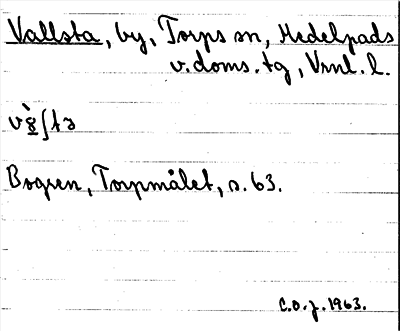 Vallsta, by, Torps sn, Medelpads
v. doms. tg, Vrnl. l.
Bogren, Torpmålet, s. 63.
C.O.J. 1963.